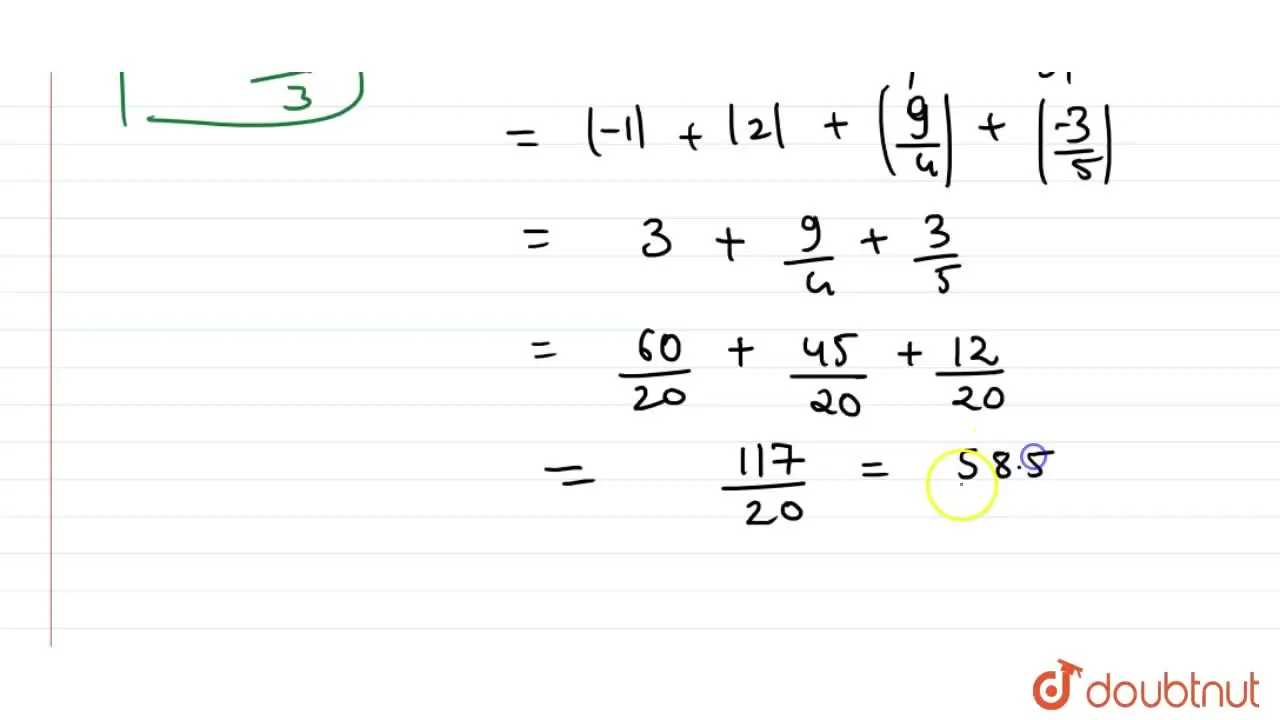 3
= |-1| + |2| + |9/4| + |-3/5|
= 3 + 9/4 + 3/5
= 60/20 + 45/20 + 12/20
= 117/20 = 58.5
doubtnut